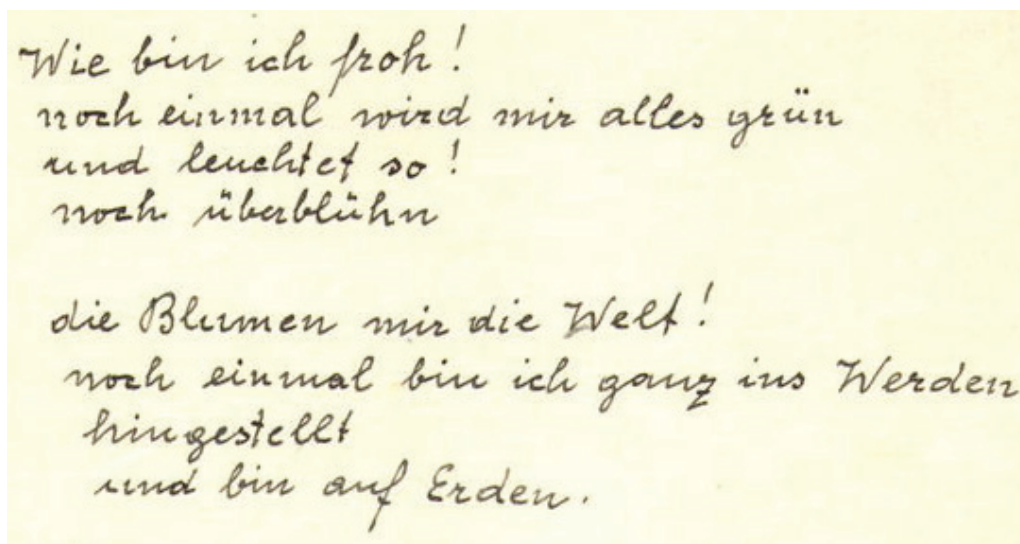 Wie bin ich froh!
noch einmal wird mir alles grün
und leuchtet so!
noch überblühn
die Blumen mir die Welt!
noch einmal bin ich ganz ins Werden
hingestellt
und bin auf Erden.